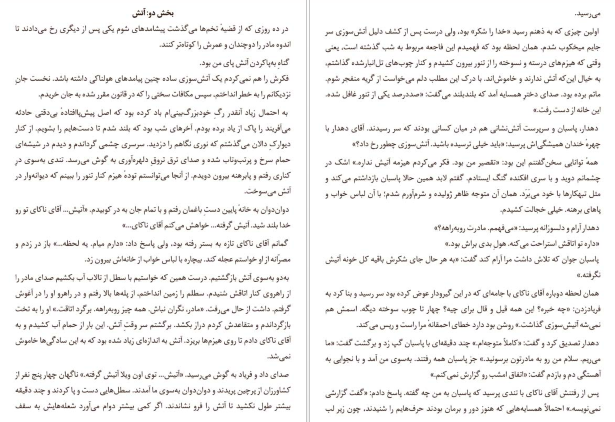 بخش دو: آتش
در ده روزی که از قضیهٔ تخم‌ها می‌گذشت پیشامدهای شوم یکی پس از دیگری رخ می‌دادند تا
اندوه مادر را دوچندان و عمرش را کوتاه‌تر کنند.
گناهِ به‌پاکردن آتش پای من بود.
فکرش را هم نمی‌کردم یک آتش‌سوزی ساده چنین پیامدهای هولناکی داشته باشد. نخست جانِ
نزدیکانم را به خطر انداختم، سپس مکافات سختی را که در قانون مقرر شده به جان خریدم.
به احتمال زیاد آنقدر رگِ خودبزرگ‌بینی‌ام باد کرده بود که اصل پیش‌پاافتادهٔ بی‌دقتی حادثه
می‌آفریند را پاک از یاد برده بودم. آخرهای شب بود که بلند شدم تا دست‌هایم را بشویم. از کنار
دیوارکِ دالان می‌گذشتم که نوری نگاهم را دزدید. سرسری چشمی گرداندم و دیدم در شیشه‌ای
حمام سرخ و پرتب‌وتاب شده و صدای ترق تروق دلهره‌آوری به گوش می‌رسد. تندی به‌سوی درِ
کناری رفتم و پابرهنه بیرون دویدم. از آنجا می‌توانستم تودهٔ هیزم کنار تنور را ببینم که دیوانه‌وار در
آتش می‌سوخت.
دوان‌دوان به خانهٔ پایین دستِ باغمان رفتم و با تمام جان به در کوبیدم. «آتیش... آقای ناکای تو رو
خدا بلند شید. آتیش گرفته... خواهش می‌کنم آقای ناکای...»
گمانم آقای ناکای تازه به بستر رفته بود، ولی پاسخ داد: «دارم میام. یه لحظه...» باز در زدم و
مصرانه از او خواستم عجله کند. بیچاره با لباس خواب از خانه‌اش بیرون زد.
به‌دو به‌سوی آتش بازگشتیم. درست همین که خواستیم با سطل از تالاب آب بکشیم صدای مادر را
از راهروی کنار اتاقش شنیدم. سطلم را زمین انداختم، از پله‌ها بالا رفتم و در راهرو او را در آغوش
گرفتم. داشت از حال می‌رفت. «مادر، نگران نباش. همه چیز روبه‌راهه. برگرد اتاقت.» او را به تخت
بازگرداندم و متقاعدش کردم دراز بکشد. برگشتم سر وقت آتش. این بار از حمام آب کشیدم و به
آقای ناکای دادم تا روی هیزم‌ها بریزد. آتش به اندازه‌ای زیاد شده بود که به این سادگی‌ها خاموش
نمی‌شد.
صدای داد و فریاد به گوش می‌رسید. «آتیش... توی اون ویلا آتیش گرفته.» ناگهان چهار پنج نفر از
کشاورزان از پرچین پریدند و دوان‌دوان به‌سوی ما آمدند. سطل‌هایی دست و پا کردند و چند دقیقه
بیشتر طول نکشید تا آتش را فرو نشاندند. اگر کمی بیشتر دوام می‌آورد شعله‌هایش به سقف
می‌رسید.
اولین چیزی که به ذهنم رسید «خدا را شکر» بود، ولی درست پس از کشف دلیل آتش‌سوزی سر
جایم میخکوب شدم. همان لحظه بود که فهمیدم این فاجعه مربوط به شب گذشته است، یعنی
وقتی که هیزم‌های درسته و نسوخته را از تنور بیرون کشیدم و کنار چوب‌های تل‌انبارشده گذاشتم،
به خیال این‌که آتش ندارند و خاموش‌اند. با درک این مطلب دلم می‌خواست از گریه منفجر شوم.
ماتم برده بود. صدای دختر همسایه آمد که بلندبلند می‌گفت: «صددرصد یکی از تنور غافل شده.
این خانه از دست رفت.»
دهدار، پاسبان و سرپرست آتش‌نشانی هم در میان کسانی بودند که سر رسیدند. آقای دهدار با
چهرهٔ خندان همیشگی‌اش پرسید: «باید خیلی ترسیده باشید. آتش‌سوزی چطور رخ داد؟»
همهٔ توانایی سخن‌گفتنم این بود: «تقصیر من بود. فکر می‌کردم هیزمه آتیش نداره.» اشک در
چشمانم دوید و با سری افکنده گنگ ایستادم. گفتم لابد همین حالا پاسبان بازداشتم می‌کند و
مثل تبهکارها با خود می‌بَرَد. همان آن متوجه ظاهر ژولیده و شرم‌آورم شدم؛ با آن لباس خواب و
پاهای برهنه. خیلی خجالت کشیدم.
دهدار آرام و دلسوزانه پرسید: «می‌فهمم. مادرت روبه‌راهه؟»
«داره تو اتاقش استراحت می‌کنه. هول بدی براش بود.»
پاسبان جوان که تلاش داشت مرا آرام کند گفت: «به هر حال جای شکرش باقیه کل خونه آتیش
نگرفته.»
همان لحظه دوباره آقای ناکای با جامه‌ای که در این گیرودار عوض کرده بود سر رسید و بنا کرد به
فریادزدن: «چه خبره؟ این همه قیل و قال برای چیه؟ چهار تا چوب سوخته دیگه. اسمش هم
نمی‌شه آتیش‌سوزی گذاشت.» روشن بود دارد خطای احمقانهٔ مرا راست و ریس می‌کند.
دهدار تصدیق کرد و گفت: «کاملاً متوجه‌ام.» چند دقیقه‌ای با پاسبان گپ زد و برگشت گفت: «ما
می‌ریم. سلام من رو به مادرتون برسونید.» جز پاسبان همه رفتند. به‌سوی من آمد و با نجوایی به
آهستگی دم و بازدم گفت: «اتفاق امشب رو گزارش نمی‌کنم.»
پس از رفتنش آقای ناکای با تندی پرسید که پاسبان به من چه گفته. پاسخ دادم: «گفت گزارشی
نمی‌نویسه.» احتمالاً همسایه‌هایی که هنوز دور و برمان بودند حرف‌هایم را شنیدند، چون زیر لب